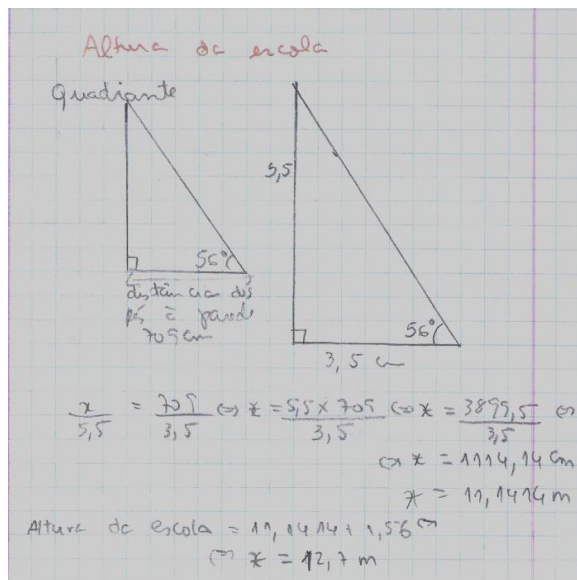 Altura da escola
Quadiante
5,5
56°
56°
distância dos
pés à parede
709 cm
3,5 cm
x/5,5 = 709/3,5 ⇔ x = 5,5 x 709/3,5 ⇔ x = 3899,5/3,5 ⇔
⇔ x = 1114,14 cm
x = 11,1414 m
Altura da escola = 11,1414 + 1,56 ⇔
⇔ x = 12,7 m